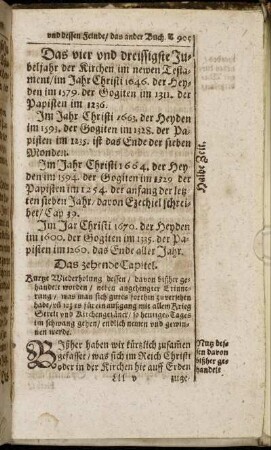 und dessen Feinde/ das ander Buch. 905
Das vier und dreissigste Ju-
beljahr der Kirchen im newen Testa-
ment/ im Jahr Christi 1646. der Hey-
den im 1579. der Gogiten im 1311. der
Papisten im 1236.
Im Jahr Christi 1663. der Heyden
im 1593. der Gogiten im 1328. der Pa-
pisten im 1235. ist das Ende der sieben
Monden.
Im Jahr Christi 1664. der Hey
den im 1594. der Gogiten im 1329 der
Papisten im 1254. der anfang der letz
ten sieben Jahr/ davon Ezechiel schrei-
bet/ Cap 39.
Im Jar Christi 1670. der Heyden
im 1600. der Gogiten im 1335. der Pa-
pisten im 1260. das Ende aller Jahr.
Halbe Zeit.
Das zehende Capitel.
Kurtze Wiederholung dessen/ davon bißher ge-
handelt worden/ neben angehengter Erinne-
rung/ was man sich guts forthin zuversehen
habe/ un̄ wz es für ein außgang mit allem Krieg
Streit und Kirchengezäncke/ so heutiges Tages
im schwang gehen/ endlich nemen und gewin-
nen werde.
BIßher haben wir kürtzlich zusam̄en
gefasset/ was sich im Reich Christi
oder in der Kirchen hie auff Erden
Nutz des-
sen davon
bißher ge-
handelt.
Lll v
zuge-